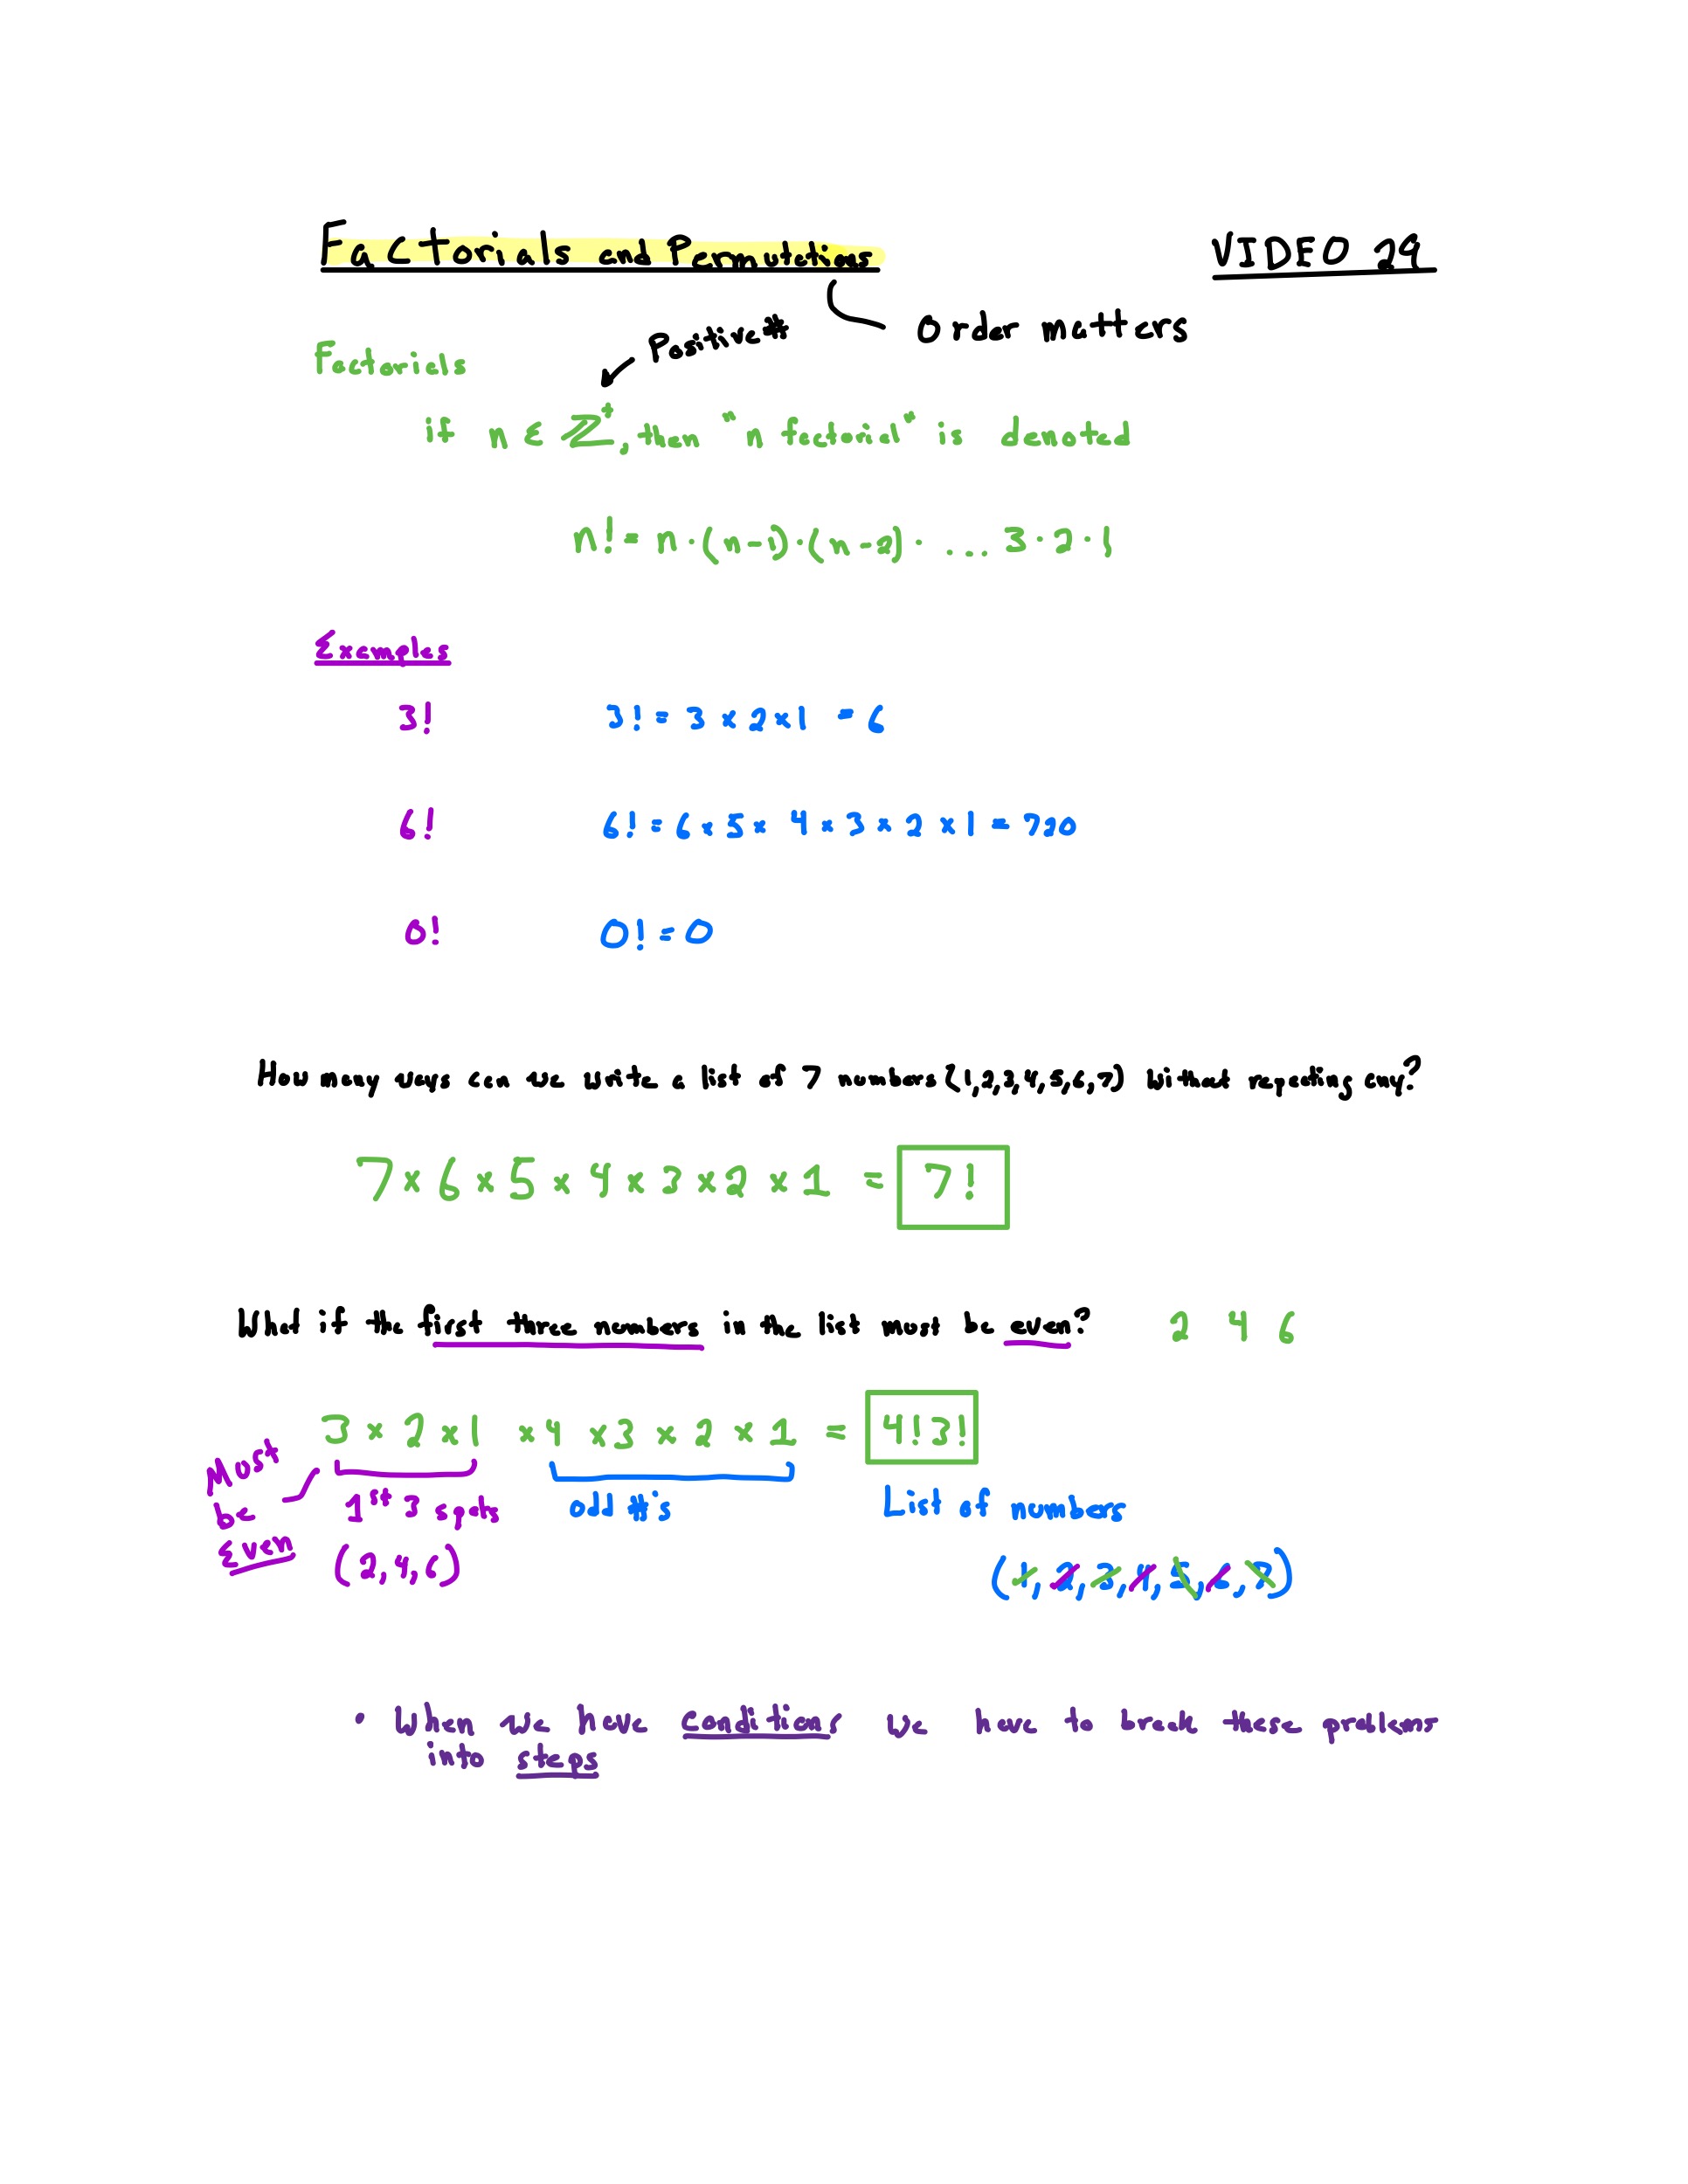 Factorials and Permutations
VIDEO 29
Order matters
Positive #
Factorials
if n ε ℤ⁺, then "n factorial" is denoted
n! = n · (n-1) · (n-2) · ... 3 · 2 · 1
Examples
3! 3! = 3 x 2 x 1 = 6
6! 6! = 6 x 5 x 4 x 3 x 2 x 1 = 720
0! 0! = 0
How many ways can we write a list of 7 numbers (1,2,3,4,5,6,7) without repeating any?
7 x 6 x 5 x 4 x 3 x 2 x 1 = 7!
What if the first three numbers in the list must be even? 2 4 6
3 x 2 x 1 x 4 x 3 x 2 x 1 = 4!3!
Must
be
Even
1st 3 spots
(2,4,6)
odd #'s
List of numbers
(1,2,3,4,5,6,7)
• When we have conditions we have to break these problems
into steps